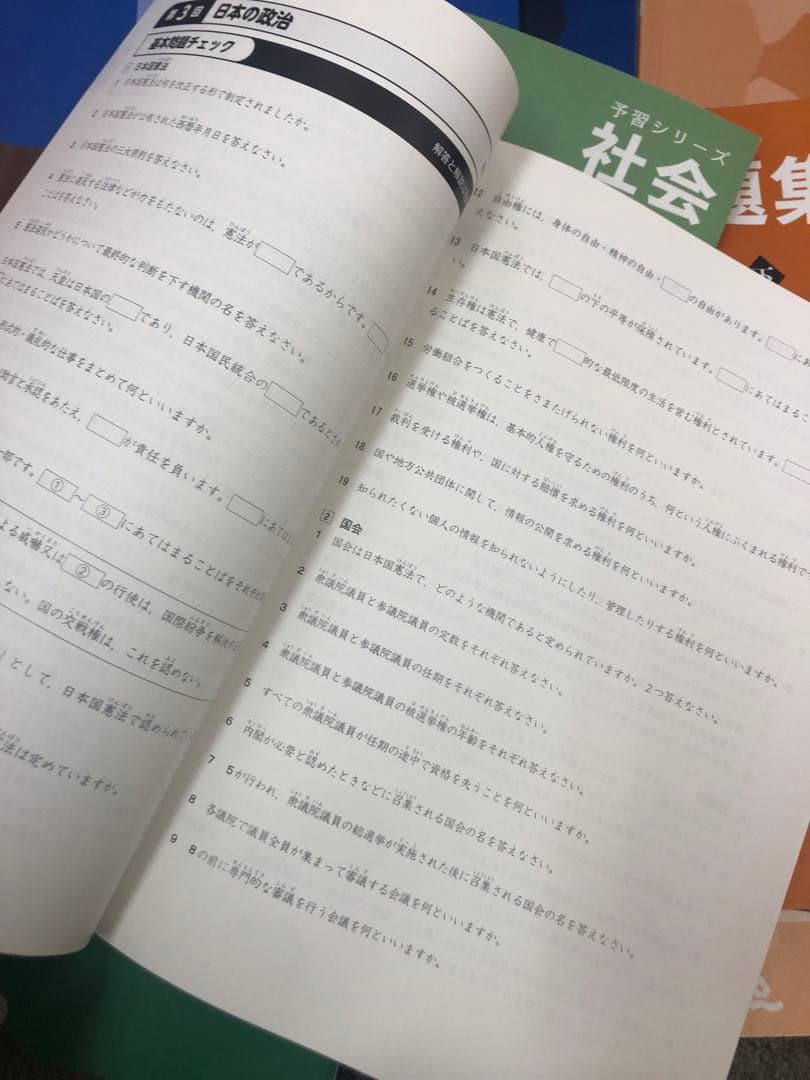 第3回 日本の政治
基本問題チェック
解答と解説
1 日本国憲法
1 日本国憲法は何を改正する形で制定されましたか。
2 日本国憲法が公布された西暦年月日を答えなさい。
3 日本国憲法の三大原則を答えなさい。
4 憲法に違反する法律などが力をもたないのは、憲法が□であるからです。□
ことばを答えなさい。
5 憲法違反かどうかについて最終的な判断を下す機関の名を答えなさい。
日本国憲法では、天皇は日本国の□であり、日本国民統合の□であるとされ
にあてはまることばを答えなさい。
形式的・儀礼的な仕事をまとめて何といいますか。
助言と承認をあたえ、□が責任を負います。□にあてはま
部です。①～③にあてはまることばをそれぞれ答
よる威嚇又は②の行使は、国際紛争を解決する
ない。国の交戦権は、これを認めない。
」として、日本国憲法で認められてい
法は定めていますか。
12 自由権には、身体の自由・精神の自由・□の自由があります。□にあ
えなさい。
13 日本国憲法では、□の下の平等が保障されています。□にあてはまるこ
い。
14 生存権は憲法で、健康で□的な最低限度の生活を営む権利とされています。□
ることばを答えなさい。
15 労働組合をつくることをさまたげられない権利を何といいますか。
16 選挙権や被選挙権は、基本的人権を守るための権利のうち、何という人権にふくまれる権利で
17 裁判を受ける権利や、国に対する賠償を求める権利を何といいますか。
18 国や地方公共団体に関して、情報の公開を求める権利を何といいますか。
19 知られたくない個人の情報を知られないようにしたり、管理したりする権利を何といいますか。
2 国会
1 国会は日本国憲法で、どのような機関であると定められていますか。2つ答えなさい。
2 衆議院議員と参議院議員の定数をそれぞれ答えなさい。
3 衆議院議員と参議院議員の任期をそれぞれ答えなさい。
4 衆議院議員と参議院議員の被選挙権の年齢をそれぞれ答えなさい。
5 すべての衆議院議員が任期の途中で資格を失うことを何といいますか。
6 内閣が必要と認めたときなどに召集される国会の名を答えなさい。
7 5が行われ、衆議院議員の総選挙が実施された後に召集される国会の名を答えなさい。
8 各議院で議員全員が集まって審議する会議を何といいますか。
9 8の前に専門的な審議を行う会議を何といいますか。
予習シリーズ
社会
題集
下